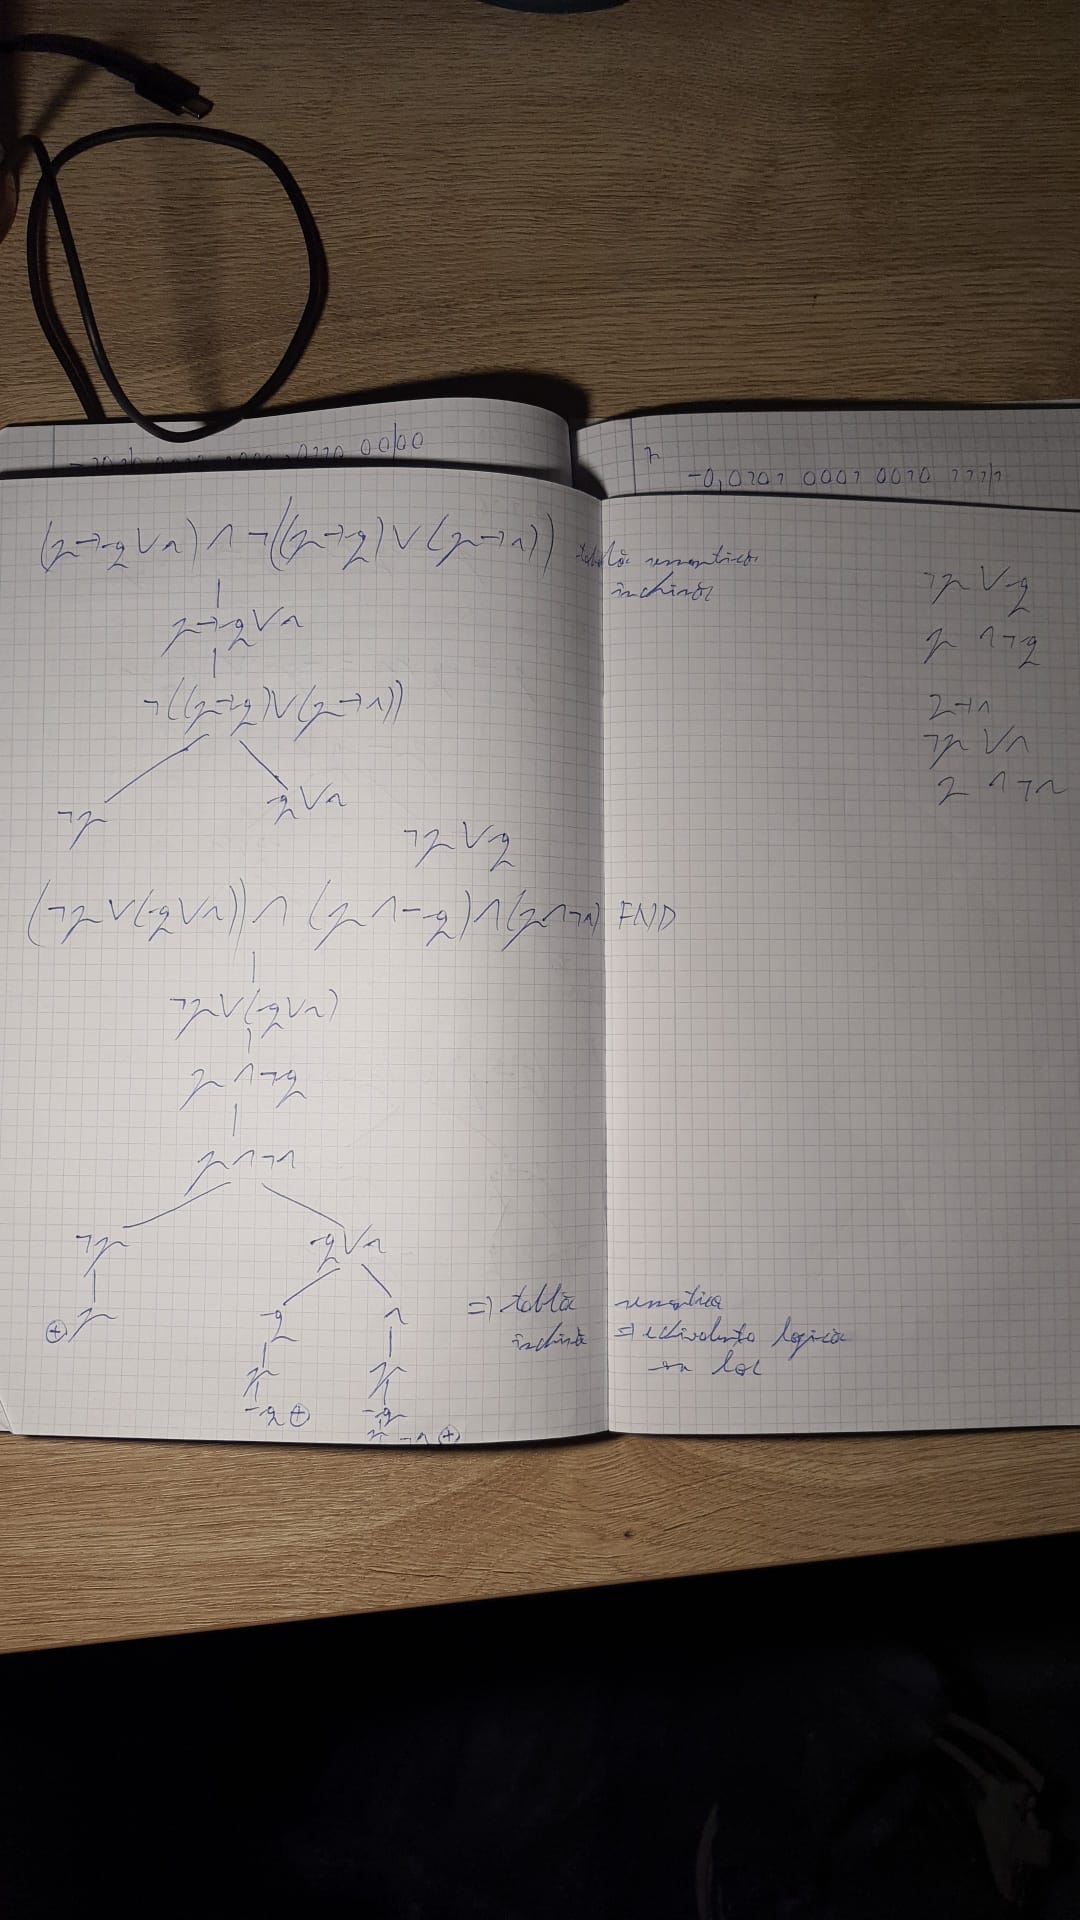 0010 00100
r
-0,0101 0001 0010 1111
(p→q∨r)∧¬((p→q)∨(p→r))
tablă semantică
închisă
p→q∨r
¬((p→q)∨(p→r))
¬p q∨r
¬p∨q
(¬p∨(q∨r))∧(p∧¬q)∧(p∧¬r) FND
¬p∨(q∨r)
p∧¬q
p∧¬r
¬p q∨r
⊕ p q r
p p
¬q ⊕ ¬q
p ¬r ⊕
=) tablă semantică
închisă => echivalența logică
are loc
¬p∨q
p∧¬q
p→r
¬p∨r
p∧¬r